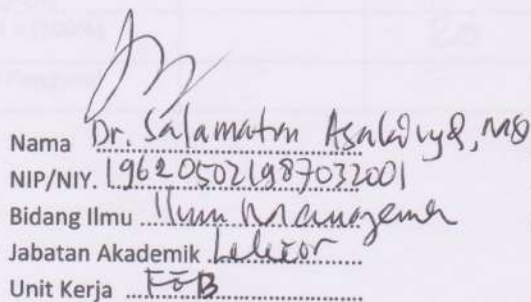 Nama Dr. Salamatun Asakdiyah, MS
NIP/NIY. 196205021987032001
Bidang Ilmu Ilmu Manajemen
Jabatan Akademik Lektor
Unit Kerja FEB